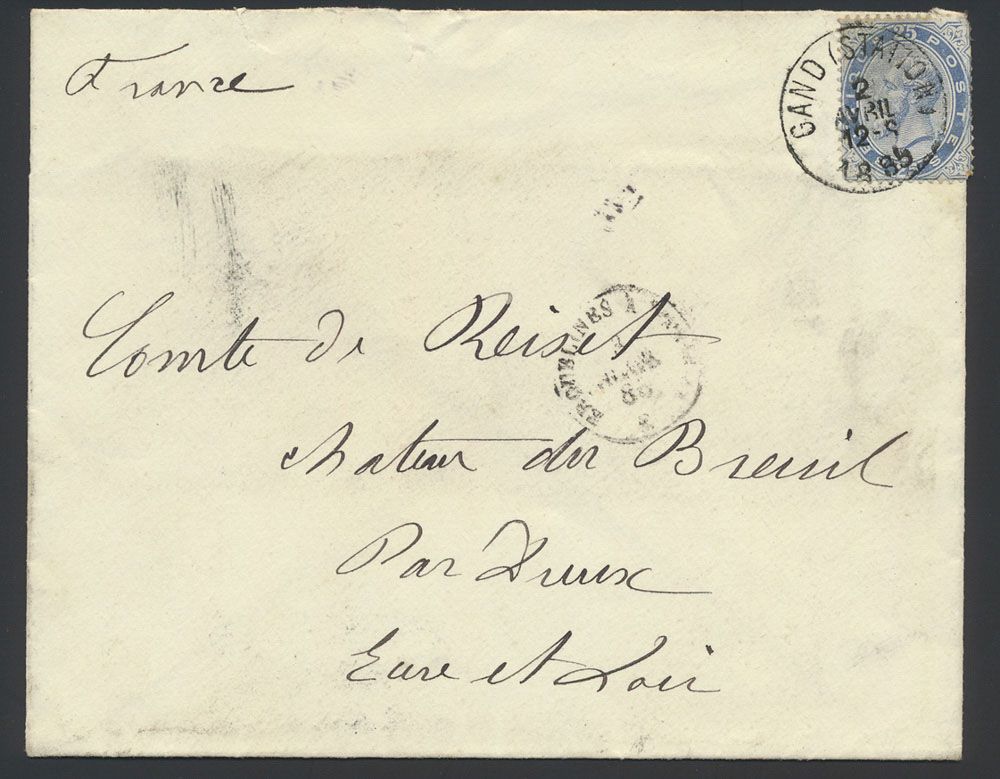 France
25 POSTES
GAND (STATION)
2
AVRIL
12-S
1885
ERQUELINES A
Comte de Reiset
chateau du Breuil
Par Dreux
Eure et Loir